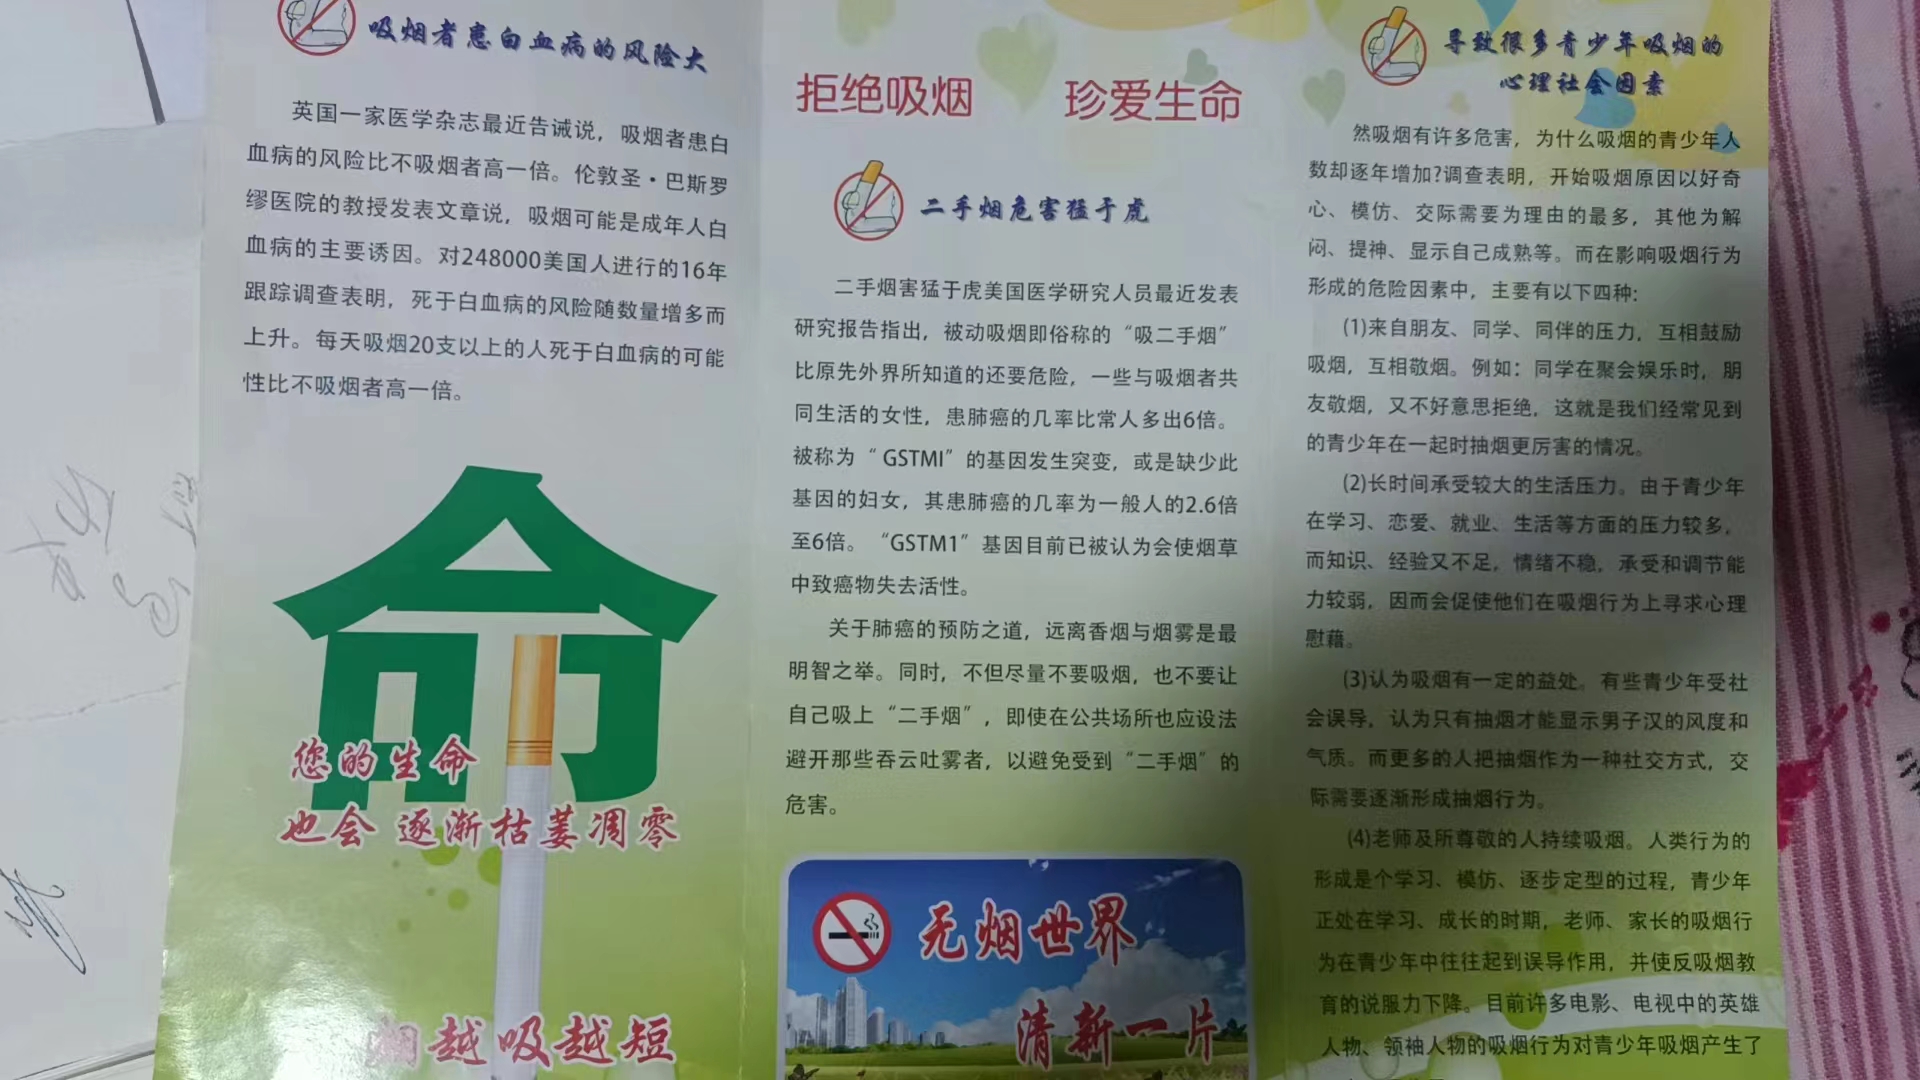 吸烟者患白血病的风险大
英国一家医学杂志最近告诫说，吸烟者患白
血病的风险比不吸烟者高一倍。伦敦圣·巴斯罗
缪医院的教授发表文章说，吸烟可能是成年人白
血病的主要诱因。对248000美国人进行的16年
跟踪调查表明，死于白血病的风险随数量增多而
上升。每天吸烟20支以上的人死于白血病的可能
性比不吸烟者高一倍。
命
您的生命
也会 逐渐枯萎凋零
烟越吸越短
拒绝吸烟 珍爱生命
二手烟危害猛于虎
二手烟害猛于虎美国医学研究人员最近发表
研究报告指出，被动吸烟即俗称的“吸二手烟”
比原先外界所知道的还要危险，一些与吸烟者共
同生活的女性，患肺癌的几率比常人多出6倍。
被称为“ GSTMI”的基因发生突变，或是缺少此
基因的妇女，其患肺癌的几率为一般人的2.6倍
至6倍。“GSTM1”基因目前已被认为会使烟草
中致癌物失去活性。
关于肺癌的预防之道，远离香烟与烟雾是最
明智之举。同时，不但尽量不要吸烟，也不要让
自己吸上“二手烟”，即使在公共场所也应设法
避开那些吞云吐雾者，以避免受到“二手烟”的
危害。
无烟世界
清新一片
导致很多青少年吸烟的
心理社会因素
然吸烟有许多危害，为什么吸烟的青少年人
数却逐年增加?调查表明，开始吸烟原因以好奇
心、模仿、交际需要为理由的最多，其他为解
闷、提神、显示自己成熟等。而在影响吸烟行为
形成的危险因素中，主要有以下四种：
(1)来自朋友、同学、同伴的压力，互相鼓励
吸烟，互相敬烟。例如：同学在聚会娱乐时，朋
友敬烟，又不好意思拒绝，这就是我们经常见到
的青少年在一起时抽烟更厉害的情况。
(2)长时间承受较大的生活压力。由于青少年
在学习、恋爱、就业、生活等方面的压力较多，
而知识、经验又不足，情绪不稳，承受和调节能
力较弱，因而会促使他们在吸烟行为上寻求心理
慰藉。
(3)认为吸烟有一定的益处。有些青少年受社
会误导，认为只有抽烟才能显示男子汉的风度和
气质。而更多的人把抽烟作为一种社交方式，交
际需要逐渐形成抽烟行为。
(4)老师及所尊敬的人持续吸烟。人类行为的
形成是个学习、模仿、逐步定型的过程，青少年
正处在学习、成长的时期，老师、家长的吸烟行
为在青少年中往往起到误导作用，并使反吸烟教
育的说服力下降。目前许多电影、电视中的英雄
人物、领袖人物的吸烟行为对青少年吸烟产生了